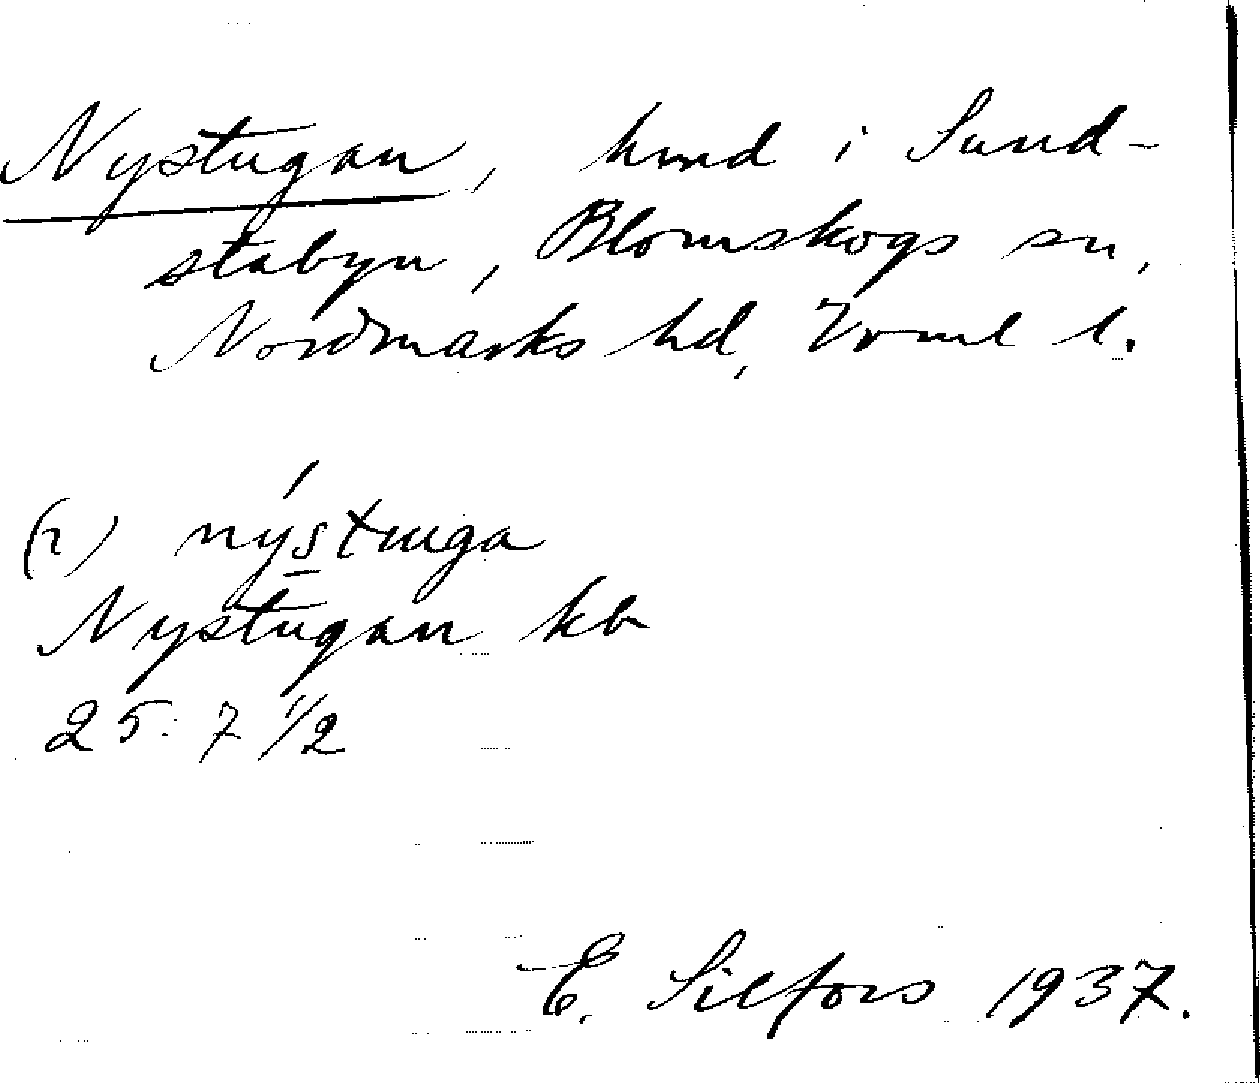 Nystugan, hmd i Sund-
stabyn, Blomskogs sn,
Nordmarks hd, Vrml l.
(2) nýstuga
Nystugan kb
25: 7 1/2
E. Silfors 1937.